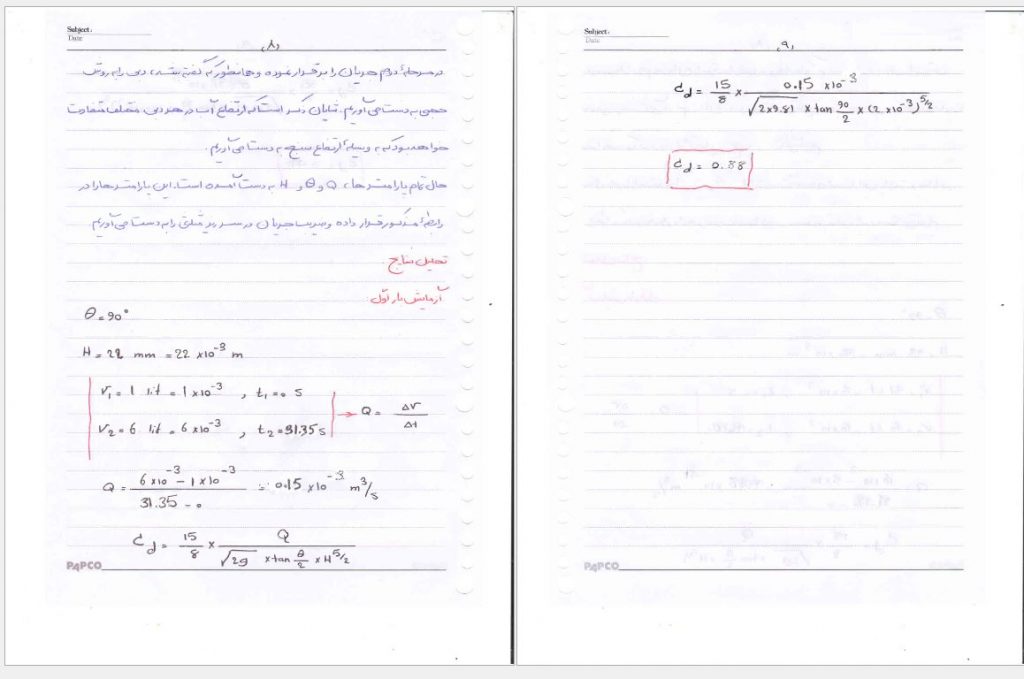 Subject:
Date
(۸)
در مرحلهٔ دوم جریان را برقرار نموده و همانطور که گفته شد، دبی را به روش
حجمی به دست می‌آوریم. شایان ذکر است که ارتفاع آب در هر دبی مختلف متفاوت
خواهد بود که به وسیلهٔ ارتفاع سنج به دست می‌آوریم.
حال تمام پارامترها، Q و θ و H به دست آمده است. این پارامترها را در
رابطهٔ مذکور قرار داده و ضریب جریان در سرریز مثلثی را به دست می‌آوریم
تحلیل نتایج.
آزمایش بار اوّل
θ = 90°
H = 22 mm = 22 x10^-3 m
V1 = 1 lit = 1 x10^-3 , t1 = 0 s
V2 = 6 lit = 6 x10^-3 , t2 = 31.35 s → Q = ΔV / Δt
Q = (6x10^-3 - 1x10^-3) / (31.35 - 0) = 0.15 x10^-3 m^3/s
Cd = 15/8 x Q / (√2g x tan θ/2 x H^5/2)
PAPCO
Subject:
Date
(۹)
Cd = 15/8 x 0.15 x10^-3 / (√2x9.81 x tan 90/2 x (2 x10^-3)^5/2)
Cd = 0.88
PAPCO